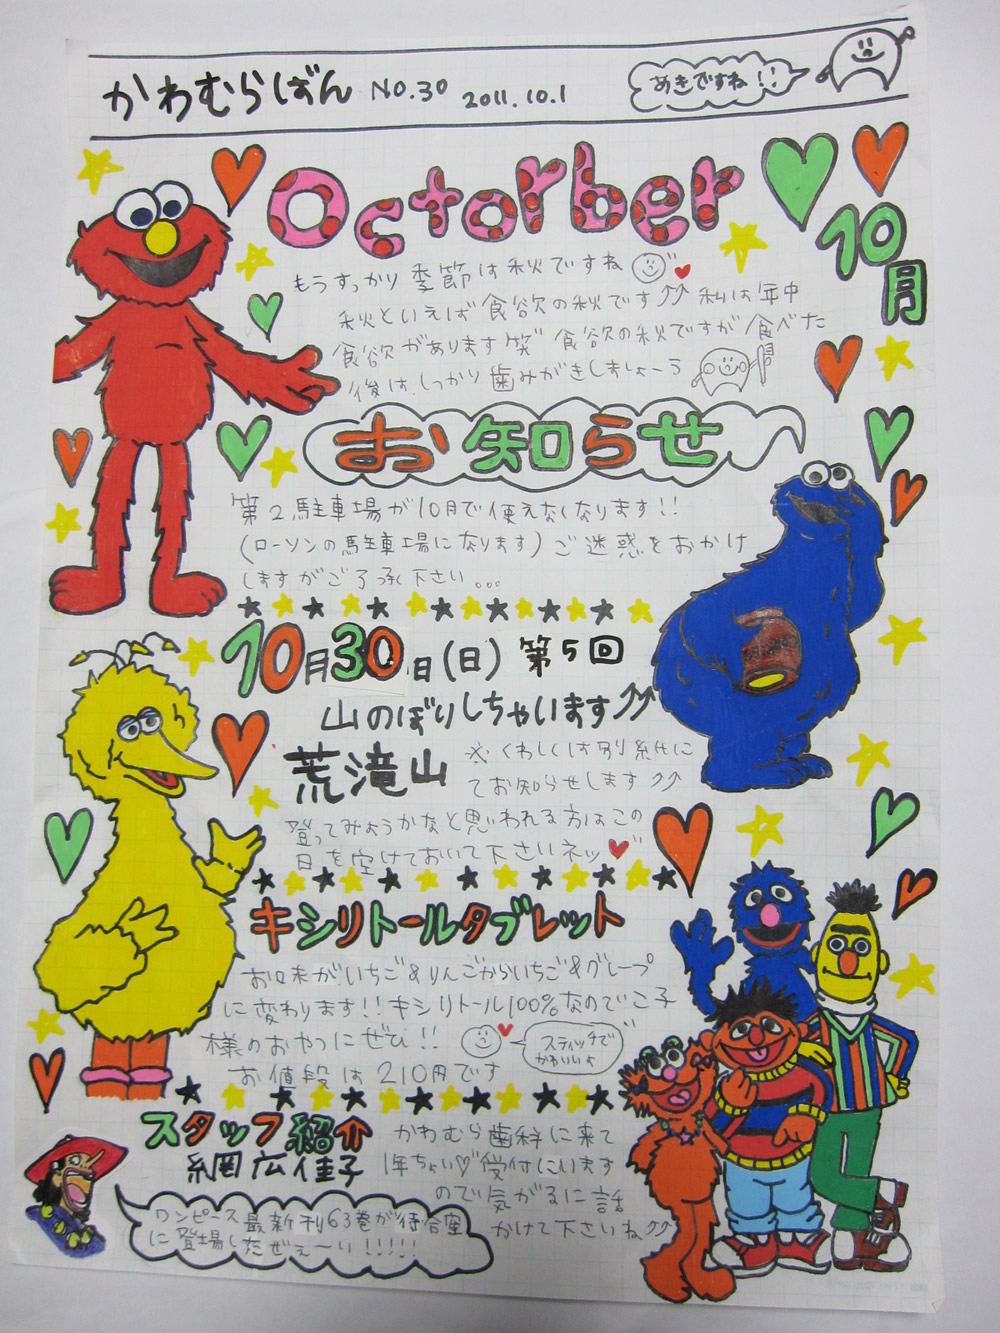 かわむらばん No.30 2011.10.1
めきですね!!
Octorber
10月
もうすっかり季節は秋ですね
秋といえば食欲の秋です⤴⤴ 私は年中
食欲があります笑 食欲の秋ですが食べた
後は、しっかり歯みがきしましょーう
お知らせ
第2駐車場が10月で使えなくなります!!
(ローソンの駐車場になります)ご迷惑をおかけ
しますがご了承下さい...
10月30日(日) 第5回
山のぼりしちゃいます⤴⤴
荒滝山
※くわしくは別紙に
てお知らせします⤴⤴
登ってみようかなと思われる方はこの
日を空けておいて下さいネッ♥
キシリトールタブレット
お味がいちご&りんごからいちご&グレープ
に変わります!!キシリトール100%なのでこ子
様のおやつにぜひ!!
スティッチで
かわいいよ
お値段は210円です
スタッフ紹介
綱広佳子
かわむら歯科に来て
1年ちょい♡受付にいます
ので気がるに話
かけて下さいね⤴⤴
ワンピース最新刊63巻が待合座
に登場したぜぇ〜い!!!!!!